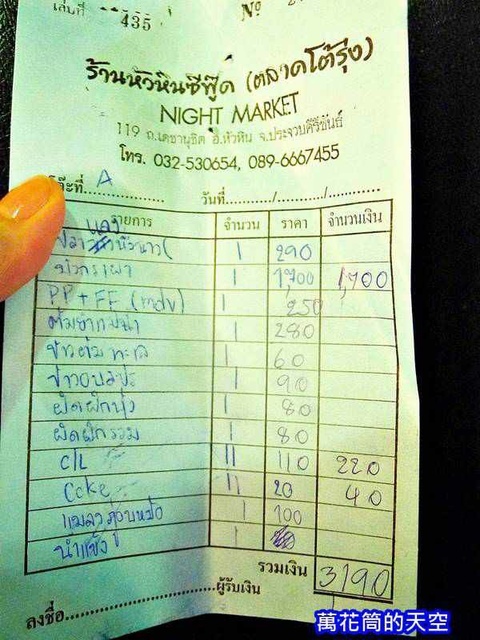 เล่นที่ 435 Nº
ร้านหัวหินซีฟู๊ด (ตลาดโต้รุ่ง)
NIGHT MARKET
119 ถ.เดชานุชิต อ.หัวหิน จ.ประจวบคีรีขันธ์
โทร. 032-530654, 089-6667455
โต๊ะที่ A วันที่ / /
รายการ จำนวน ราคา จำนวนเงิน
1 290
1 1,700 1,700
PP + FF (mdv) 1 250
1 280
ข้าวต้มทะเล 1 60
1 90
ผัดผักบุ้ง 1 80
ผัดผักรวม 1 80
C/L 11 110 220
Coke 11 20 40
1 100
น้ำแข็ง 1
รวมเงิน 3190
ลงชื่อ ผู้รับเงิน
萬花筒的天空